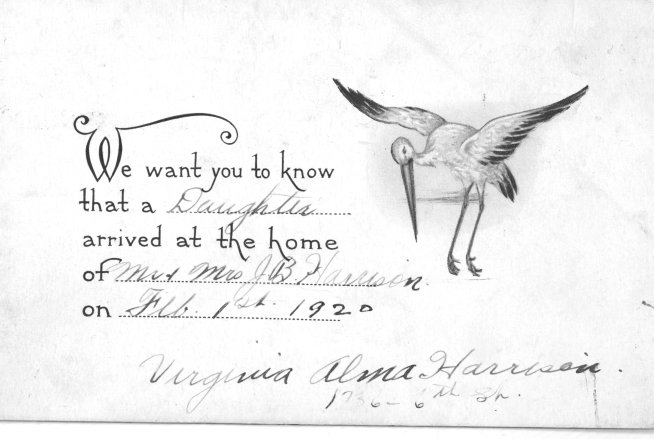 We want you to know
that a Daughter
arrived at the home
of Mr & Mrs J B Harrison.
on Feb. 1st. 1920
Virginia Alma Harrison.
1736 - 6th St.